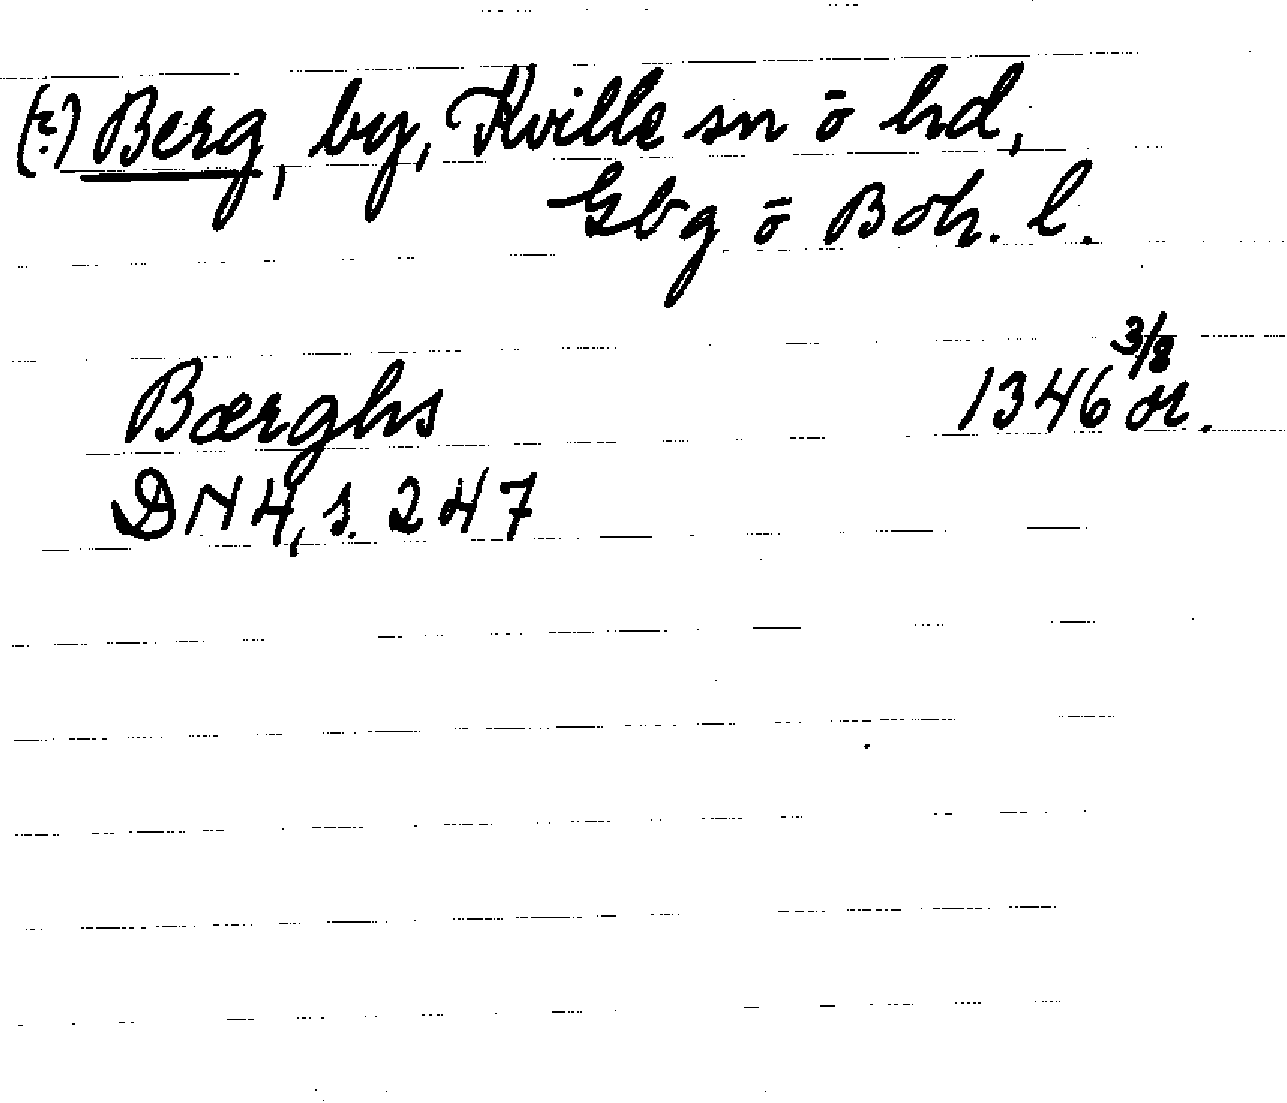 (?) Berg, by, Kville sn ō hd,
Gbg ō Boh. l.
Bærghs 1346 3/8 or.
DN 4, s. 247